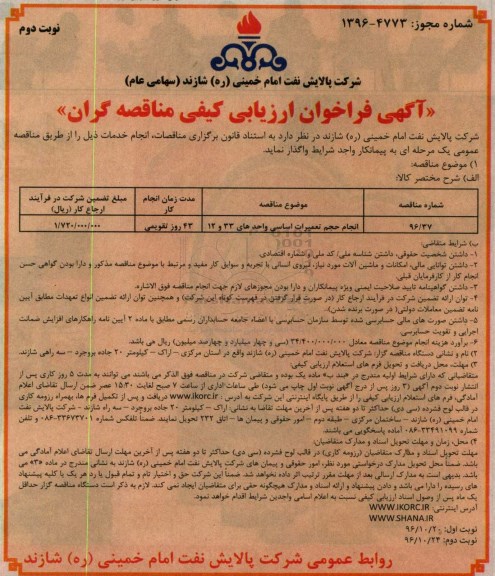 شماره مجوز: ۴۷۷۳-۱۳۹۶
نوبت دوم
شرکت پالایش نفت امام خمینی (ره) شازند (سهامی عام)
«آگهی فراخوان ارزیابی کیفی مناقصه گران»
شرکت پالایش نفت امام خمینی (ره) شازند در نظر دارد به استناد قانون برگزاری مناقصات، انجام خدمات ذیل را از طریق مناقصه
عمومی یک مرحله ای به پیمانکار واجد شرایط واگذار نماید.
۱) موضوع مناقصه:
الف) شرح مختصر کالا:
شماره مناقصه | موضوع مناقصه | مدت زمان انجام کار | مبلغ تضمین شرکت در فرآیند ارجاع کار (ریال)
۹۶/۳۷ | انجام حجم تعمیرات اساسی واحد های ۳۳ و ۱۲ | ۴۳ روز تقویمی | ۱/۷۲۰/۰۰۰/۰۰۰
ب) شرایط متقاضی:
۱- داشتن شخصیت حقوقی، داشتن شناسه ملی/ کد ملی و شماره اقتصادی.
۲- داشتن توانایی مالی، امکانات و ماشین آلات مورد نیاز، نیروی انسانی با تجربه و سوابق کار مفید و مرتبط با موضوع مناقصه مذکور و دارا بودن گواهی حسن
انجام کار از کارفرمایان قبلی.
۳- داشتن گواهینامه تایید صلاحیت ایمنی ویژه پیمانکاران و دارا بودن مجوزهای لازم جهت انجام مناقصه فوق الاشاره.
۴- توان ارائه تضمین شرکت در فرآیند ارجاع کار (در صورت قرار گرفتن در فهرست کوتاه این شرکت) و همچنین توان ارائه تضمین انواع تعهدات مطابق آیین
نامه تضمین معاملات دولتی( در صورت برنده شدن).
۵- داشتن صورت های مالی حسابرسی شده توسط سازمان حسابرسی یا اعضاء جامعه حسابداران رسمی مطابق با ماده ۲ آیین نامه راهکارهای افزایش ضمانت
اجرایی و تقویت حسابرسی
۶- برآورد هزینه انجام موضوع مناقصه معادل ۳۴/۴۰۰/۰۰۰/۰۰۰ (سی و چهار میلیارد و چهارصد میلیون) ریال می باشد.
۲) نام و نشانی دستگاه مناقصه گزار: شرکت پالایش نفت امام خمینی (ره) شازند واقع در استان مرکزی – اراک – کیلومتر ۲۰ جاده بروجرد – سه راهی شازند.
۳) مهلت، محل دریافت و تحویل فرم های استعلام ارزیابی کیفی:
متقاضیانی که دارای شرایط اولیه مندرج در «بند ب» ماده یک بوده و متقاضی شرکت در مناقصه فوق الذکر می باشند می توانند به مدت ۵ روز کاری پس از
انتشار نوبت دوم آگهی (۳ روز پس از درج آگهی نوبت اول چاپ می شود) طی ساعات اداری از ساعت ۷ صبح لغایت ۱۵:۳۰ عصر ضمن ارسال تقاضای اعلام
آمادگی، فرم های استعلام ارزیابی کیفی را از طریق پایگاه اینترنتی این شرکت به آدرس: www.ikorc.ir دریافت و پس از تکمیل فرم ها، بهمراه رزومه کاری
در قالب لوح فشرده (سی دی) حداکثر تا دو هفته پس از آخرین مهلت تقاضا به نشانی: اراک – کیلومتر ۲۰ جاده بروجرد – سه راه شازند – شرکت پالایش نفت
امام خمینی (ره) شازند – ساختمان مرکزی – طبقه دوم – امور حقوقی و پیمان ها – اتاق ۲۳۲ تحویل نمایند. ضمناً تلفکس شماره ۳۳۶۷۳۷۰۱-۰۸۶ و تلفن
شماره ۳۳۴۹۱۰۹۹-۰۸۶ آماده پاسخگویی می باشند.
۴) محل، زمان و مهلت تحویل اسناد و مدارک متقاضیان:
مهلت تحویل اسناد و مدارک متقاضیان (رزومه کاری) در قالب لوح فشرده (سی دی) حداکثر تا دو هفته پس از آخرین مهلت ارسال تقاضای اعلام آمادگی می
باشد. ضمناً محل تحویل مدارک درخواستی مورد نظر، امور حقوقی و پیمان های شرکت پالایش نفت امام خمینی (ره) شازند به نشانی مندرج در ماده «۳» می
باشد. بدیهی است به مدارک ارسالی بعد از مهلت مقرر ترتیب اثر داده نخواهد شد. ضمناً این شرکت حق و اختیار تام و تمام قبول یا رد هر یک یا کلیه پیشنهاد
های رسیده را دارا می باشد و دادن پیشنهاد و ارائه اسناد و مدارک هیچگونه حقی برای متقاضیان ایجاد نمی کند. لازم به ذکر است دستگاه مناقصه گزار حداقل
یک ماه پس از وصول اسناد ارزیابی کیفی نسبت به اعلام اسامی واجدین شرایط اقدام خواهد نمود.
آدرس اینترنتی: WWW.IKORC.IR
WWW.SHANA.IR
نوبت اول: ۹۶/۱۰/۲۰
نوبت دوم: ۹۶/۱۰/۲۴
روابط عمومی شرکت پالایش نفت امام خمینی (ره) شازند